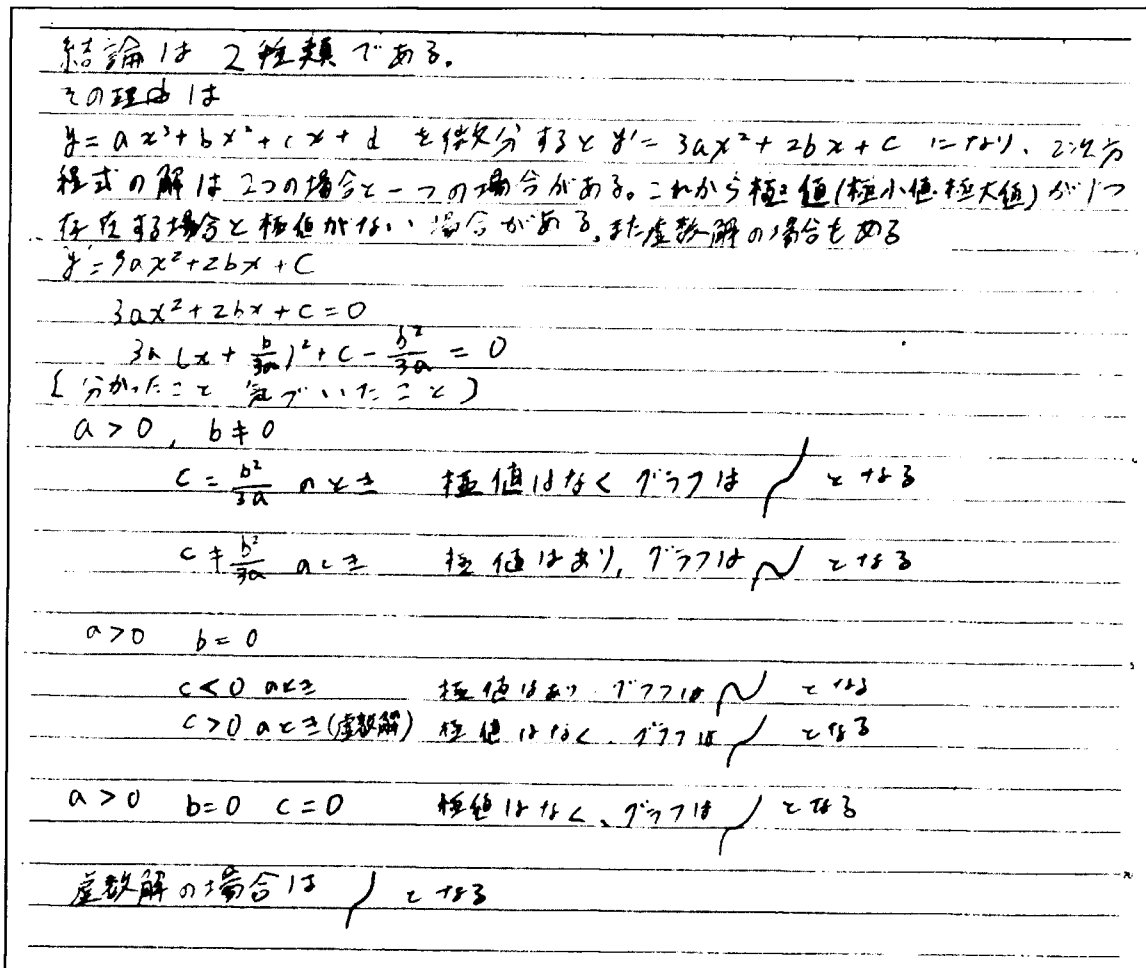 結論は 2種類である。
その理由は
y=ax³+bx²+cx+d を微分すると y'=3ax²+2bx+c になり、2次方
程式の解は2つの場合と一つの場合がある。これから極値(極小値・極大値)が1つ
存在する場合と極値がない場合がある。また虚数解の場合もある
y'=3ax²+2bx+c
3ax²+2bx+c=0
3a(x+b/3a)²+c-b²/3a=0
[分かったこと 気づいたこと]
a>0, b≠0
c=b²/3a のとき 極値はなくグラフは となる
c≠b²/3a のとき 極値はあり、グラフは となる
a>0 b=0
c<0 のとき 極値はあり グラフは となる
c>0 のとき(虚数解) 極値はなく、グラフは となる
a>0 b=0 c=0 極値はなく、グラフは となる
虚数解の場合は となる